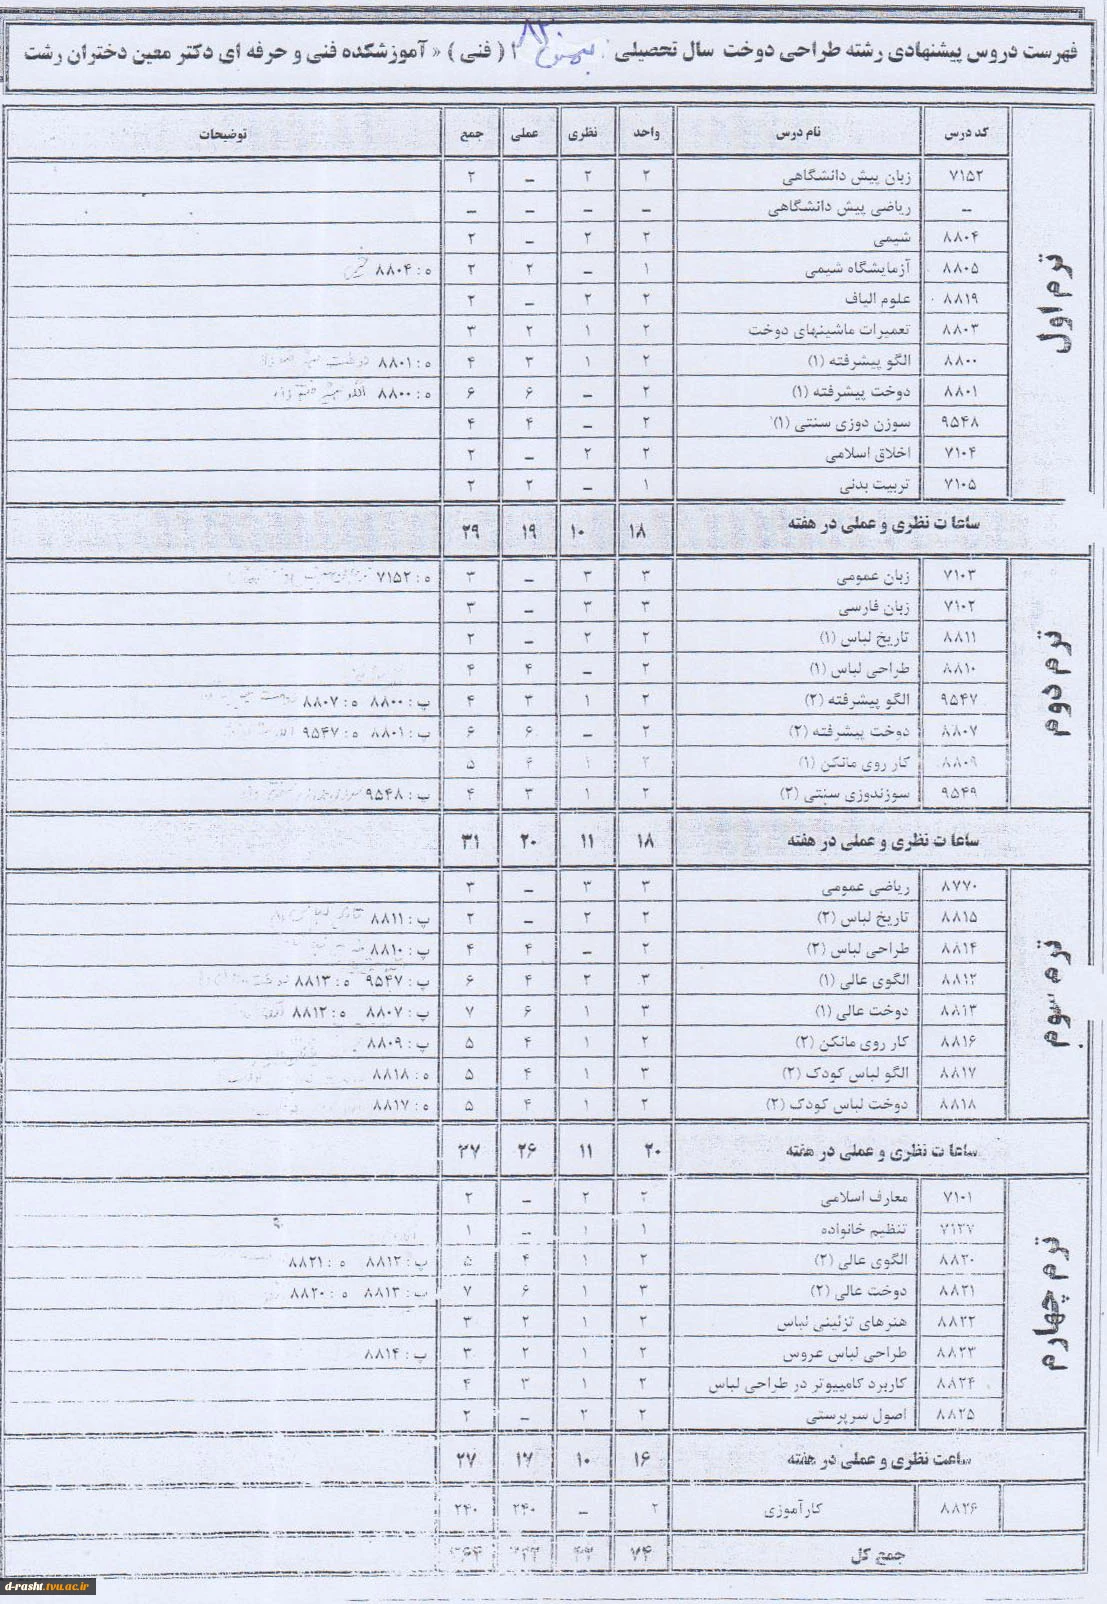 فهرست دروس پیشنهادی رشته طراحی دوخت سال تحصیلی : بهمن ۸۲۰ ۲ ( فنی ) « آموزشکده فنی و حرفه ای دکتر معین دختران رشت
کد درس نام درس واحد نظری عملی جمع توضیحات
ترم اول
۷۱۵۲ زبان پیش دانشگاهی ۲ ۲ – ۲
– ریاضی پیش دانشگاهی – – – –
۸۸۰۴ شیمی ۲ ۲ – ۲
۸۸۰۵ آزمایشگاه شیمی ۱ – ۲ ۲ ه : ۸۸۰۴
۸۸۱۹ علوم الیاف ۲ ۲ – ۲
۸۸۰۳ تعمیرات ماشینهای دوخت ۲ ۱ ۲ ۳
۸۸۰۰ الگو پیشرفته (۱) ۲ ۱ ۳ ۴ ه : ۸۸۰۱
۸۸۰۱ دوخت پیشرفته (۱) ۲ – ۶ ۶ ه : ۸۸۰۰
۹۵۴۸ سوزن دوزی سنتی (۱) ۲ – ۴ ۴
۷۱۰۴ اخلاق اسلامی ۲ ۲ – ۲
۷۱۰۵ تربیت بدنی ۱ – ۲ ۲
ساعات نظری و عملی در هفته ۱۸ ۱۰ ۱۹ ۲۹
ترم دوم
۷۱۰۳ زبان عمومی ۳ ۳ – ۳ ه : ۷۱۵۲
۷۱۰۲ زبان فارسی ۳ ۳ – ۳
۸۸۱۱ تاریخ لباس (۱) ۲ ۲ – ۲
۸۸۱۰ طراحی لباس (۱) ۲ – ۴ ۴
۹۵۴۷ الگو پیشرفته (۲) ۲ ۱ ۳ ۴ پ : ۸۸۰۰ ه : ۸۸۰۷
۸۸۰۷ دوخت پیشرفته (۲) ۲ – ۶ ۶ پ : ۸۸۰۱ ه : ۹۵۴۷
۸۸۰۹ کار روی مانکن (۱) ۲ ۱ ۴ ۵
۹۵۴۹ سوزندوزی سنتی (۲) ۲ ۱ ۳ ۴ پ : ۹۵۴۸
ساعات نظری و عملی در هفته ۱۸ ۱۱ ۲۰ ۳۱
ترم سوم
۸۷۷۰ ریاضی عمومی ۳ ۳ – ۳
۸۸۱۵ تاریخ لباس (۲) ۲ ۲ – ۲ پ : ۸۸۱۱
۸۸۱۴ طراحی لباس (۲) ۲ – ۴ ۴ پ : ۸۸۱۰
۸۸۱۲ الگوی عالی (۱) ۳ ۲ ۴ ۶ پ : ۹۵۴۷ ه : ۸۸۱۳
۸۸۱۳ دوخت عالی (۱) ۳ ۱ ۶ ۷ پ : ۸۸۰۷ ه : ۸۸۱۲
۸۸۱۶ کار روی مانکن (۲) ۲ ۱ ۴ ۵ پ : ۸۸۰۹
۸۸۱۷ الگو لباس کودک (۲) ۳ ۱ ۴ ۵ ه : ۸۸۱۸
۸۸۱۸ دوخت لباس کودک (۲) ۲ ۱ ۴ ۵ ه : ۸۸۱۷
ساعات نظری و عملی در هفته ۲۰ ۱۱ ۲۶ ۳۷
ترم چهارم
۷۱۰۱ معارف اسلامی ۲ ۲ – ۲
۷۱۲۷ تنظیم خانواده ۱ ۱ – ۱
۸۸۲۰ الگوی عالی (۲) ۲ ۱ ۴ ۵ پ : ۸۸۱۲ ه : ۸۸۲۱
۸۸۲۱ دوخت عالی (۲) ۳ ۱ ۶ ۷ پ : ۸۸۱۳ ه : ۸۸۲۰
۸۸۲۲ هنرهای تزئینی لباس ۲ ۱ ۲ ۳
۸۸۲۳ طراحی لباس عروس ۲ ۱ ۲ ۳ پ : ۸۸۱۴
۸۸۲۴ کاربرد کامپیوتر در طراحی لباس ۲ ۱ ۳ ۴
۸۸۲۵ اصول سرپرستی ۲ ۲ – ۲
ساعت نظری و عملی در هفته ۱۶ ۱۰ ۱۷ ۲۷
۸۸۲۶ کارآموزی ۲ – ۲۴۰ ۲۴۰
جمع کل ۷۴
d-rasht.tvu.ac.ir